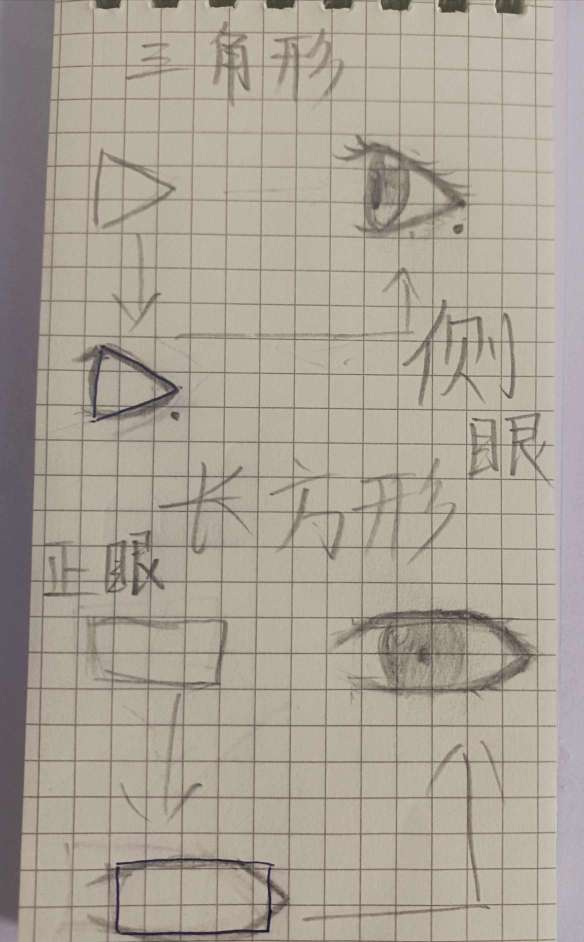 三角形
侧
眼
长方形
正眼